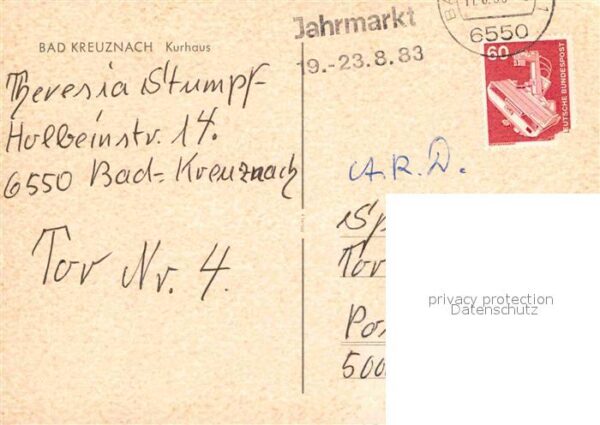 BAD KREUZNACH Kurhaus
Theresia Stumpf
Holbeinstr. 14.
6550 Bad-Kreuznach
Tor Nr. 4.
Jahrmarkt
19.-23.8.83
6550
60
DEUTSCHE BUNDESPOST
A.R.D.
Sp
Tor
Po
500
privacy protection
Datenschutz